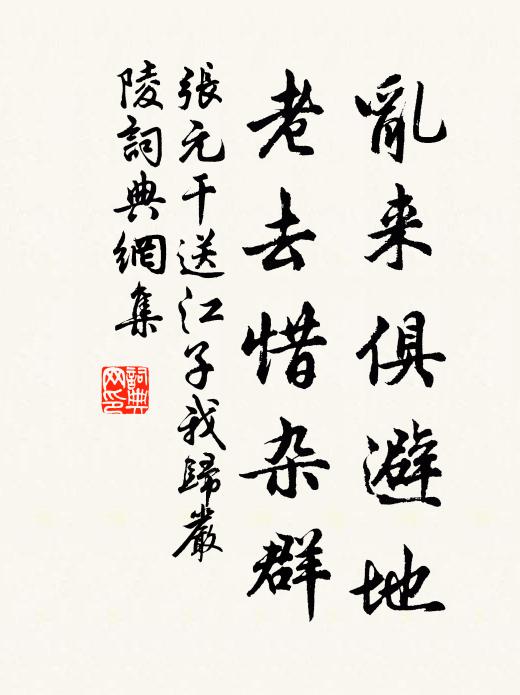 亂来俱避地
老去惜杂群
張元干送江子我歸嚴
陵詞典網集
詞典
网印